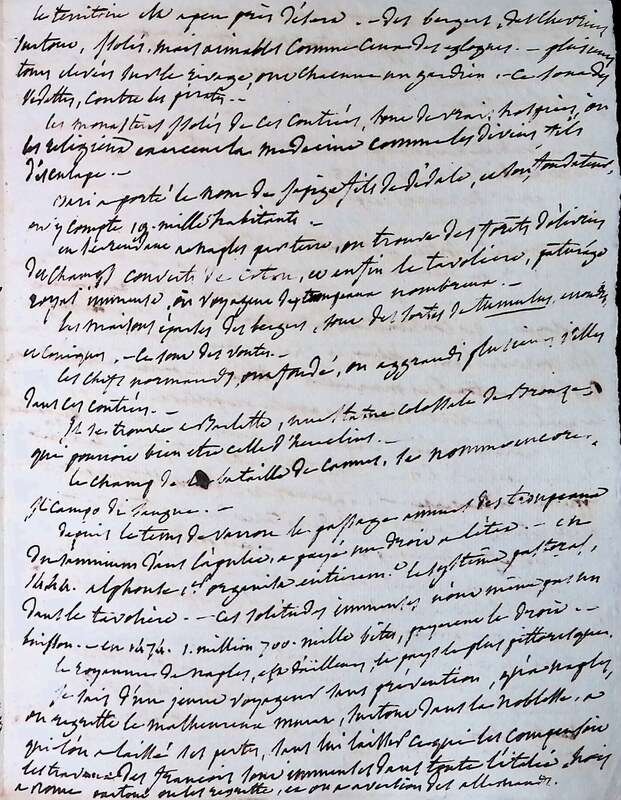 le territoire est a peu près désert. — des bergers, des chevriers
surtout, isolés, mais aimables comme ceux des eglogues. — plusieurs
tours elevées sur le rivage, ont chacune un gardien. — ce sont des
vedettes, contre les pirates. —
les monastères isolés de ces contrées, sont de vrais hospices, où
les religieux exercent la medecine comme les divins fils
d'esculape. —
Bari a porté le nom de Japige fils de dédale, et son fondateur,
on y compte 19. mille habitants. —
en se rendant a naples par terre, on trouve des forêts d'oliviers
des champs couverts de coton, et enfin le tavolière, paturage
royal immense, où voyagent des troupeaux nombreux. —
les maisons éparses des bergers, sont des sortes de tumulus, rondes,
et coniques. — ce sont des voutes. —
les chefs normands, ont fondé, ou aggrandi plusieurs villes
dans ces contrées. —
Il se trouve a Barlette, une statue colossale de Bronze,
qui pourroit bien etre celle d'heraclius. —
le champ de la bataille de Cannes, se nomme encore,
il Campo di sangue. —
depuis le tems de varron le passage annuel des troupeaux
du samnium dans l'apulie, a payé un droit a l'état. — en
1442. alphonse 1er organisa entierem.t le système pastoral,
dans le tavolière. — ces solitudes immenses n'ont même pas un
buisson. — en 1474. 1. million 700. mille bêtes, payerent le droit. —
le royaume de naples, est d'ailleurs, le pays le plus pittoresque.
je sais d'un jeune voyageur sans prévention, qu'a naples,
on regrette le malheureux murat, surtout dans la noblesse, a
qui l'on a laissé ses pertes, sans lui laisser ce qui les compensoit
les travaux des francois sont immenses dans toute l'italie, mais
a rome surtout on les regrette, et on a aversion des allemands.